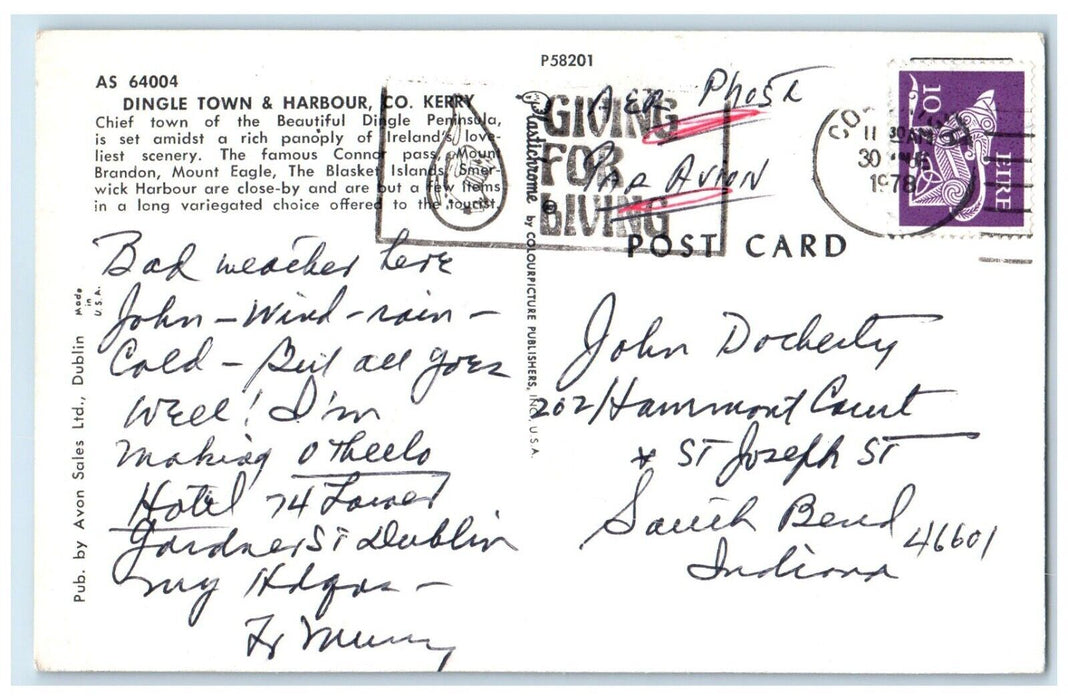 P58201
AS 64004
DINGLE TOWN & HARBOUR, CO. KERRY
Chief town of the Beautiful Dingle Peninsula,
is set amidst a rich panoply of Ireland's love-
liest scenery. The famous Connor pass, Mount
Brandon, Mount Eagle, The Blasket Islands, Smer-
wick Harbour are close-by and are but a few items
in a long variegated choice offered to the tourist.
GIVING
FOR
LIVING
AER PHOST
PAR AVION
11 30AM
30
1978
10
EIRE
POST CARD
Plastichrome ® by COLOURPICTURE PUBLISHERS, INC., U.S.A.
Pub. by Avon Sales Ltd., Dublin
Made
in
U.S.A.
Bad weather here
John – Wind – rain –
Cold – But all goes
Well! I'm
making Othello
Hotel 74 Lower
Gardner St Dublin
my Hdqrs –
Fr Murray
John Docherty
202 Hammont Court
* ST Joseph ST
South Bend
46601
Indiana